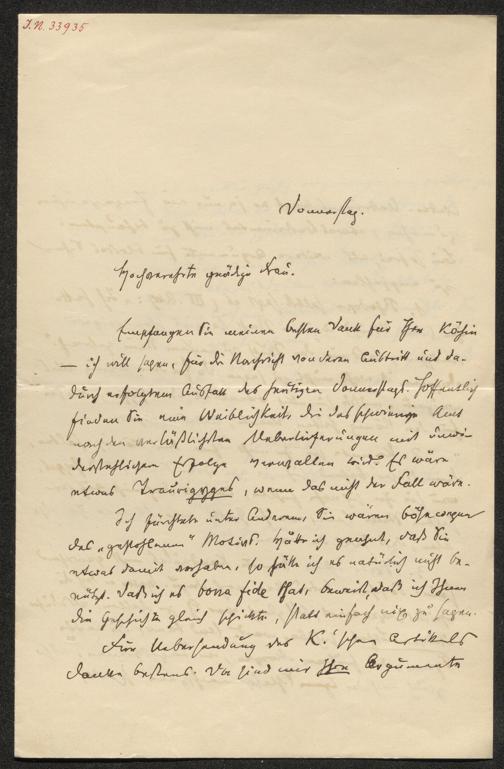 I.N. 33935
Donnerstag.
Hochverehrte gnädige Frau.
Empfangen Sie meinen besten Dank für Ihre Köchin
— ich will sagen, für die Nachricht von deren Austritt und da-
durch erfolgtem Ausfall des heutigen Donnerstags. Hoffentlich
finden Sie eine Weiblichkeit, die das schwierige Amt
nach den verläßlichsten Ueberlieferungen mit unwi-
derstehlichem Erfolge verwalten wird. Es wäre
etwas Trauriges, wenn das nicht der Fall wäre.
Ich fürchtete unter Anderem, Sie wären böse wegen
des „gestohlenen" Motivs. Hätte ich geahnt, daß Sie
etwas damit vorhaben, so hätte ich es natürlich nicht be-
nützt. Daß ich es bona fide that, beweist, daß ich Ihnen
die Geschichte gleich schickte, statt einfach nix zu sagen.
Für Uebersendung des K.'schen Artikels
danke bestens. Da sind mir Ihre Argumente